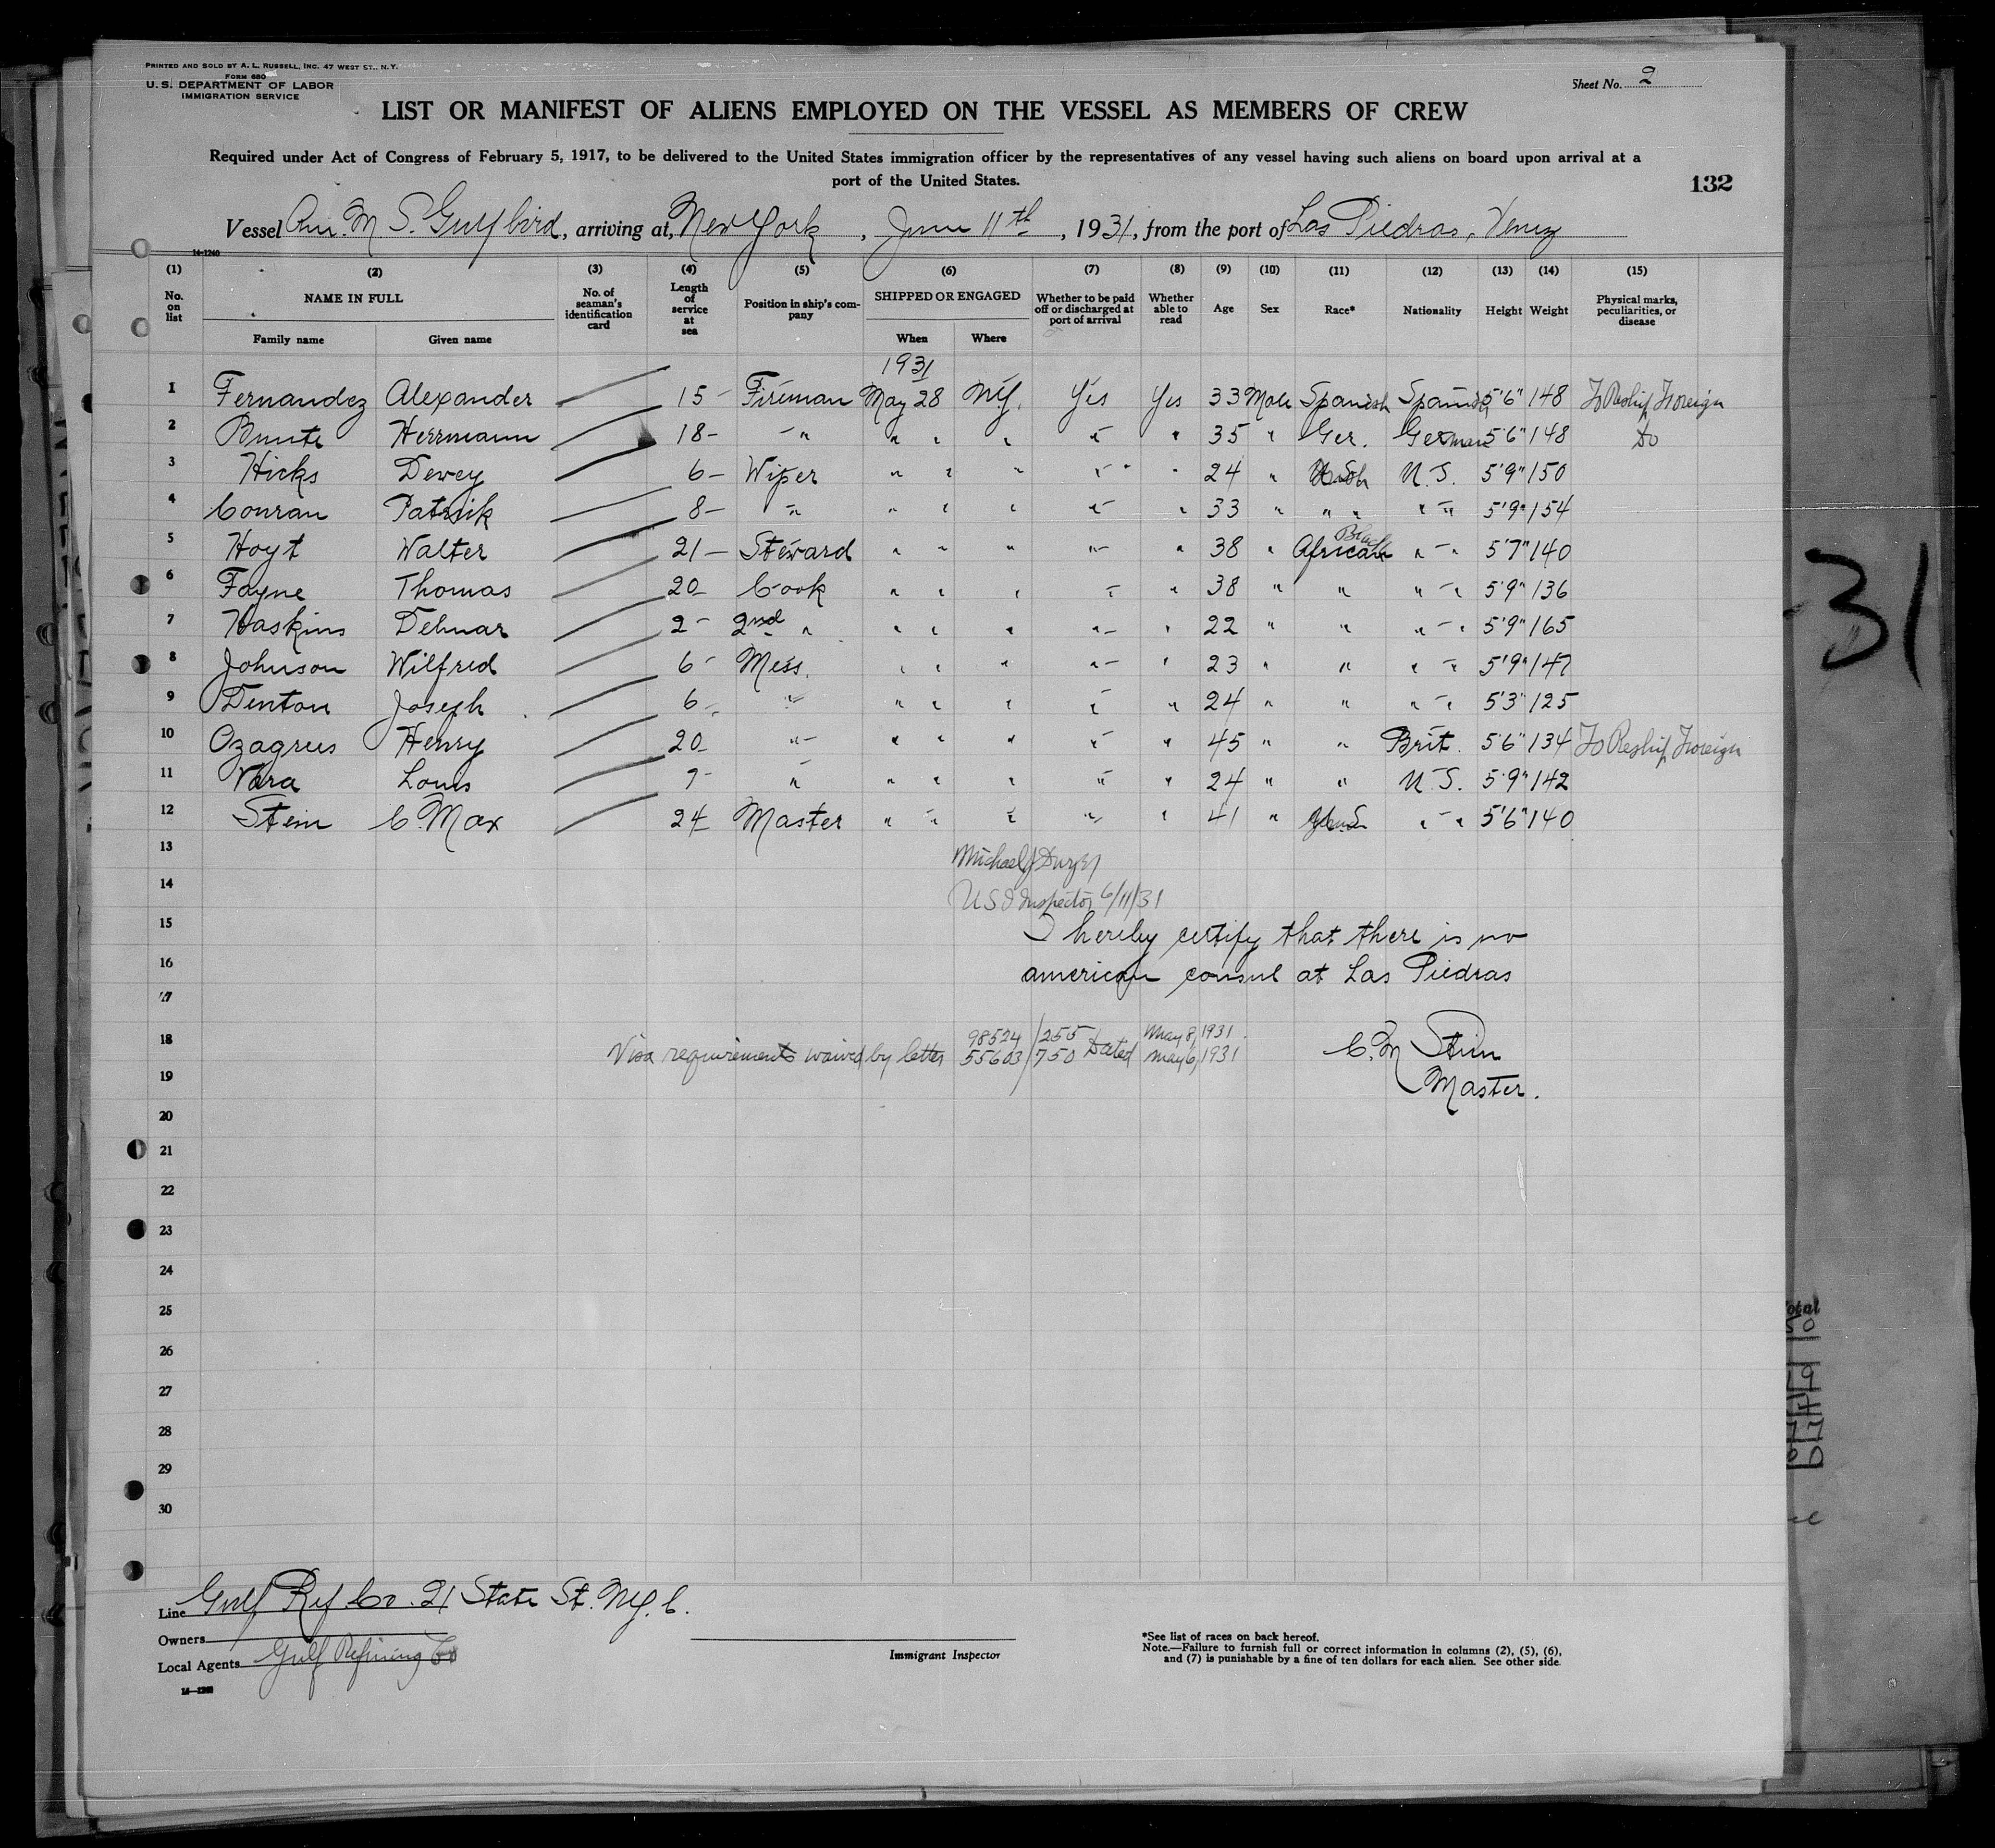 PRINTED AND SOLD BY A. L. RUSSELL, INC. 47 WEST ST., N.Y.
FORM 680
U. S. DEPARTMENT OF LABOR
IMMIGRATION SERVICE
Sheet No. 2
LIST OR MANIFEST OF ALIENS EMPLOYED ON THE VESSEL AS MEMBERS OF CREW
Required under Act of Congress of February 5, 1917, to be delivered to the United States immigration officer by the representatives of any vessel having such aliens on board upon arrival at a
port of the United States.
132
Vessel Am. M S. Gulfbird, arriving at, New York, June 11th, 1931, from the port of Las Piedras, Venez
14-1240
(1) (2) (3) (4) (5) (6) (7) (8) (9) (10) (11) (12) (13) (14) (15)
No. on list NAME IN FULL Family name Given name No. of seaman's identification card Length of service at sea Position in ship's company SHIPPED OR ENGAGED When Where Whether to be paid off or discharged at port of arrival Whether able to read Age Sex Race* Nationality Height Weight Physical marks, peculiarities, or disease
1931
1 Fernandez Alexander 15 - Fireman May 28 NY. Yes Yes 33 Male Spanish Spanish 5'6" 148 To Reship Foreign
2 Bunte Herrmann 18 - " " " " " " 35 " Ger. German 5'6" 148 Do
3 Hicks Dewey 6 - Wiper " " " " " 24 " U.S. 5'9" 150
4 Conran Patrick 8 - " " " " " " 33 " " " " " 5'9" 154
5 Hoyt Walter 21 - Steward " " " " " 38 " African Black " " 5'7" 140
6 Fayne Thomas 20 - Cook " " " " " 38 " " " " 5'9" 136
7 Haskins Delmar 2 - 2nd " " " " " " 22 " " " " 5'9" 165
8 Johnson Wilfred 6 - Mess. " " " " " 23 " " " " 5'9" 147
9 Denton Joseph 6 - " " " " " " 24 " " " " 5'3" 125
10 Ozagrus Henry 20 - " " " " " " 45 " " Brit. 5'6" 134 To Reship Foreign
11 Vara Louis 7 - " " " " " " 24 " " U.S. 5'9" 142
12 Stein C. Max 24 Master " " " " " 41 " " " 5'6" 140
13
Michael J Dwyer
14
U S I Inspector 6/11/31
15
I hereby certify that there is no
16
american consul at Las Piedras
17
18
98524/255 May 8, 1931.
Visa requirements waived by letter 55603/750 Dated May 6, 1931
C. M Stein
19
Master.
20
21
22
23
24
25
26
27
28
29
30
Line Gulf Ref. Co. 21 State St. N.Y.C.
Owners
Local Agents Gulf Refining Co
Immigrant Inspector
*See list of races on back hereof.
Note.—Failure to furnish full or correct information in columns (2), (5), (6),
and (7) is punishable by a fine of ten dollars for each alien. See other side.
14-1240
31